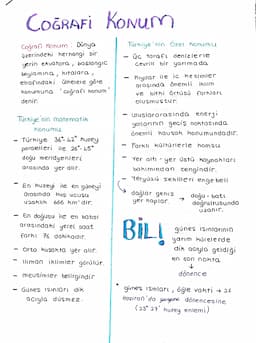 COĞRAFİ KONUM
Coğrafi Konum : Dünya
üzerindeki herhangi bir
yerin ekvatora, başlangıç
boylamına, kıtalara,
etrafındaki ülkelere göre
konumuna 'coğrafi konum'
denir.
Türkiye'nin matematik
konumu
- Türkiye 36°-42° kuzey
paralelleri ile 26°-45°
doğu meridyenleri
arasında yer alır.
- En kuzeyi ile en güneyi
arasında kuş uçuşu
uzaklık 666 km'dir.
- En doğusu ile en batısı
arasındaki yerel saat
farkı 76 dakikadır.
- Orta kuşakta yer alır.
- Ilıman iklimler görülür.
- Mevsimler belirgindir
- Güneş ışınları dik
açıyla düşmez.
Türkiye'nin Özel Konumu
- Üç tarafı denizlerle
çevrili bir yarımada
- Kıyılar ile iç kesimler
arasında önemli iklim
ve bitki örtüsü farkları
oluşmuştur.
- Uluslararasında enerji
yollarının geçiş noktasında
önemli kavşak konumundadır.
- Farklı kültürlerle komşu
- Yer altı - yer üstü kaynakları
bakımından zengindir.
- Yeryüzü şekilleri engebeli
dağlar geniş
yer kaplar. → doğu - batı
doğrultusunda
uzanır.
BİL!
güneş ışınlarının
yarım kürelerde
dik açıyla geldiği
en son nokta
↓
dönence
* güneş ışınları, öğle vakti → 21
haziran'da yengeç dönencesine
(23° 27' kuzey enlemi)